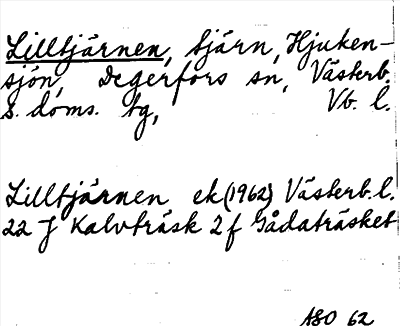 Lilltjärnen, tjärn, Hjuken-
sjön, Degerfors sn, Västerb.
s. doms. tg, Vb. l.
Lilltjärnen ek (1962) Västerb. l.
22 J Kalvträsk 2 f Gådaträsket
ASO 62